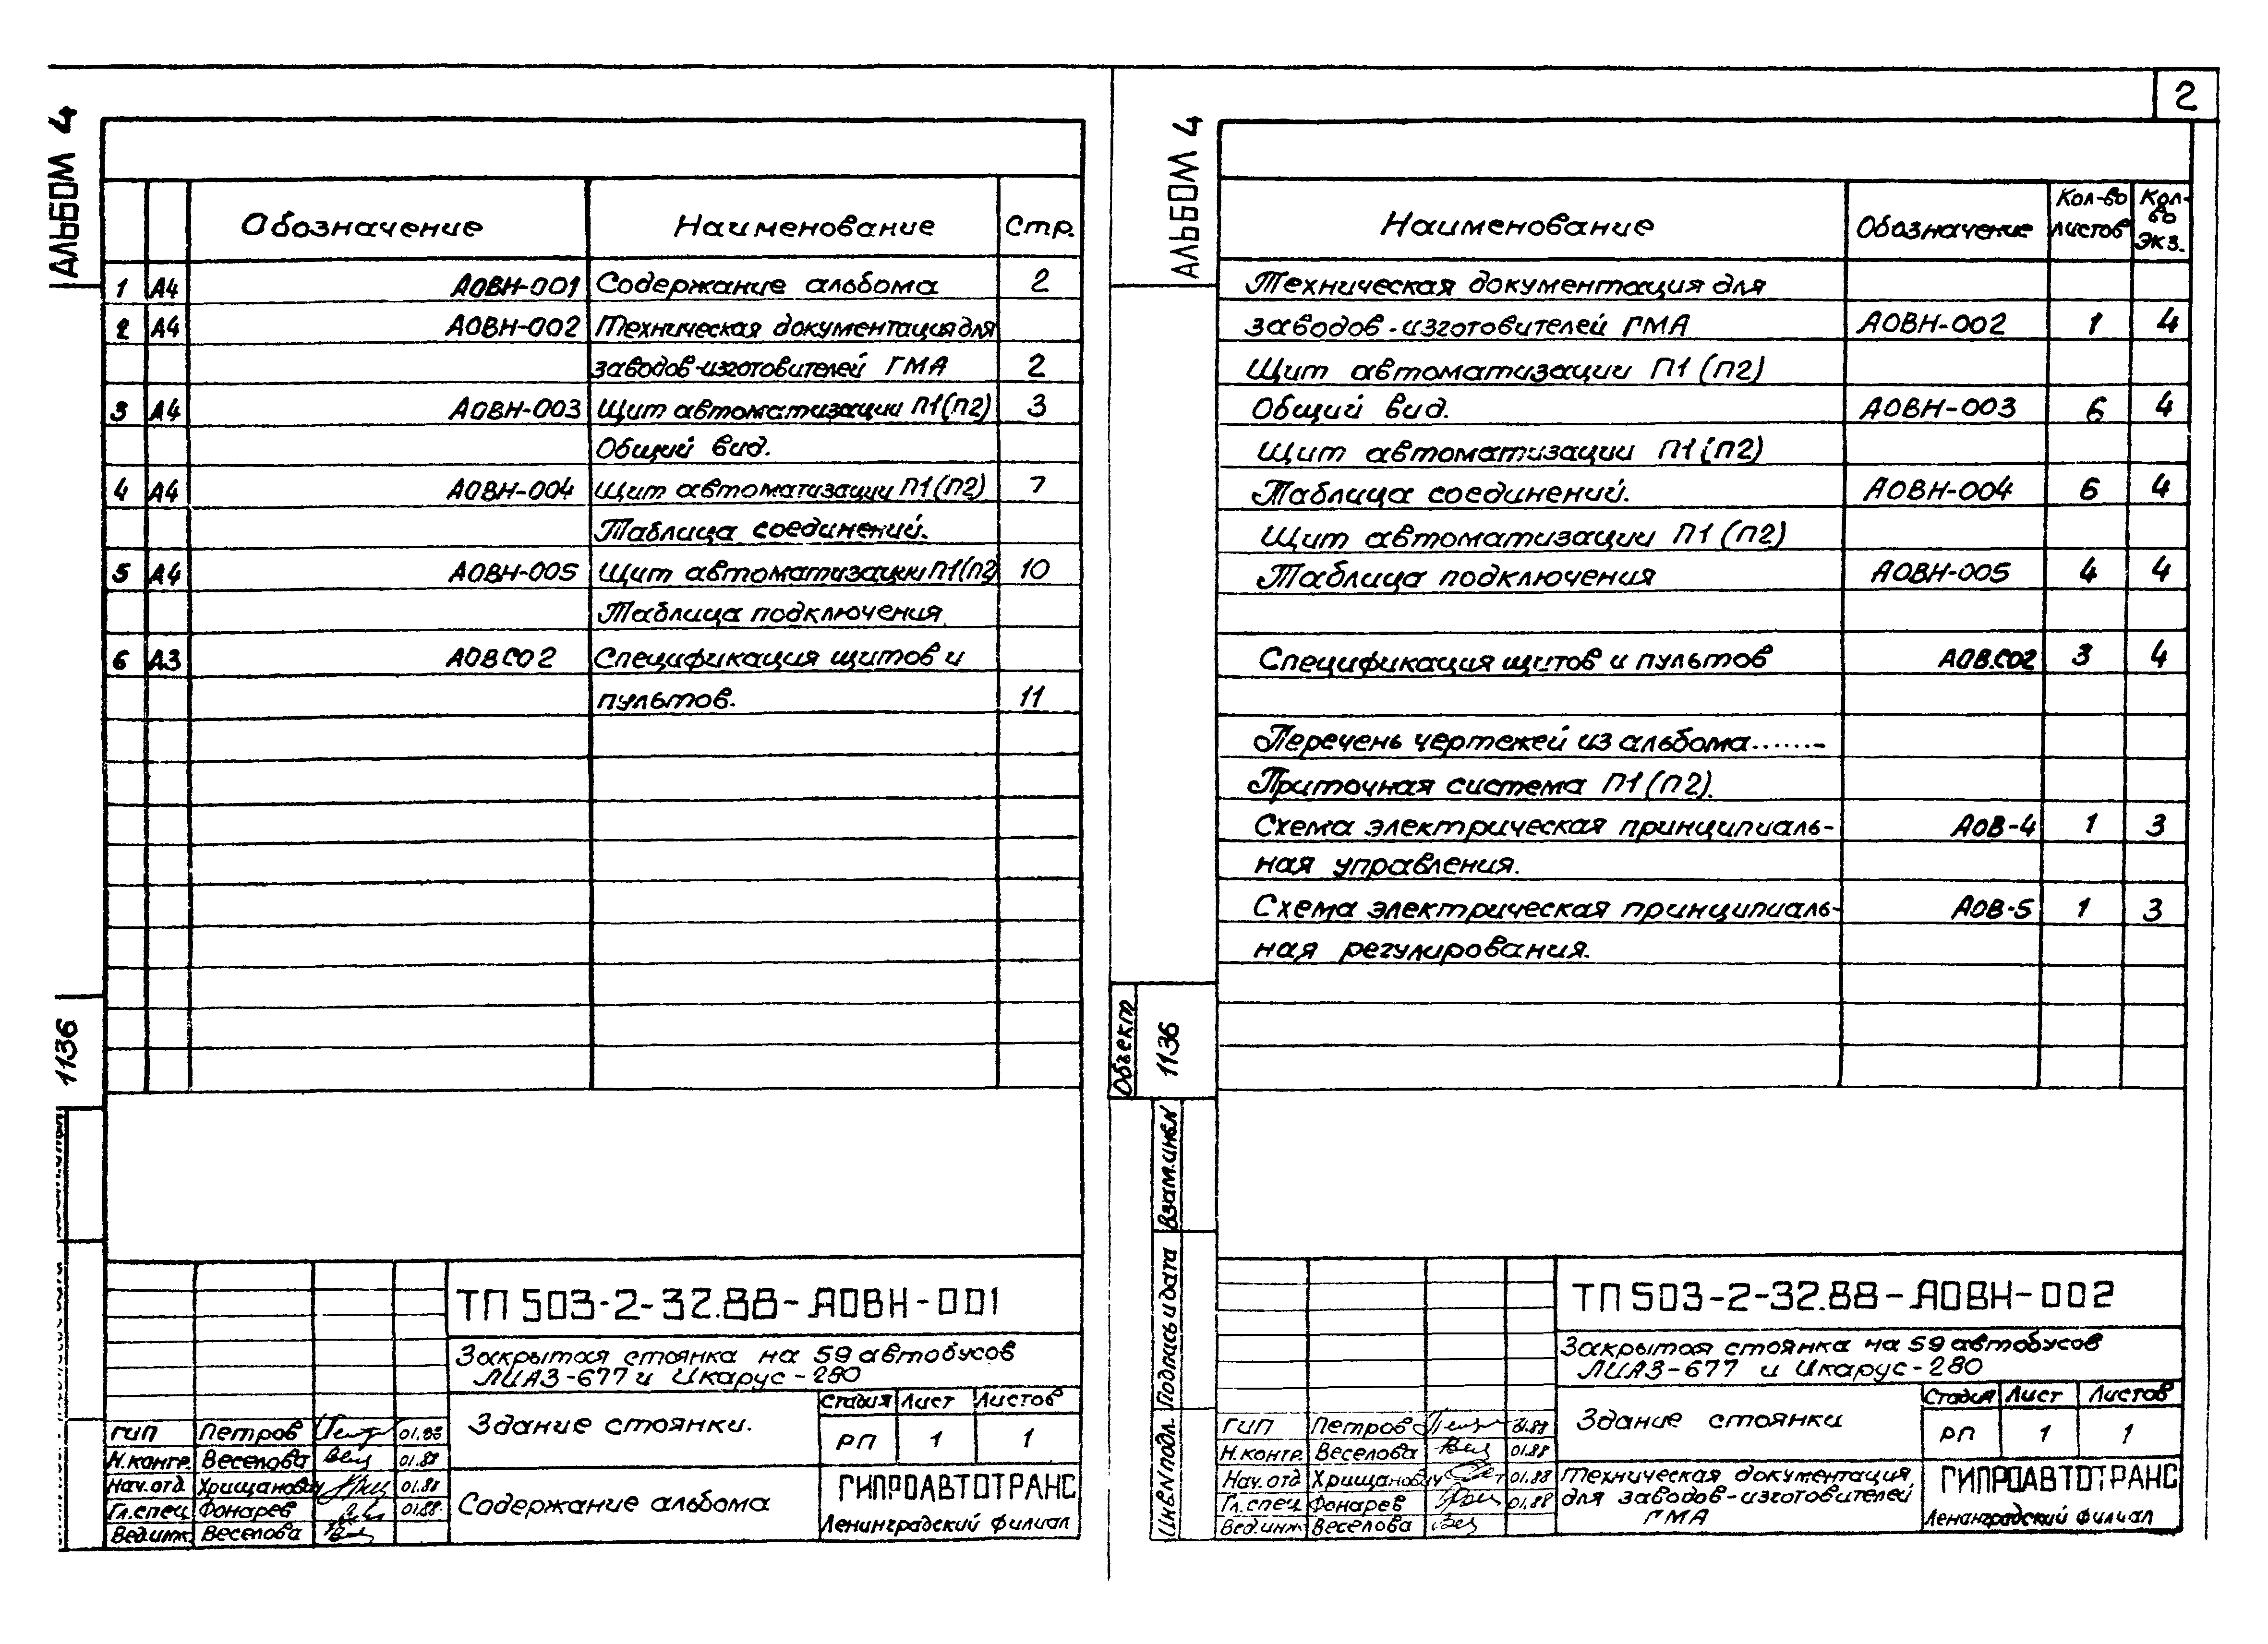 2
АЛЬБОМ 4
Обозначение Наименование Стр.
1 А4 АОВН-001 Содержание альбома 2
2 А4 АОВН-002 Техническая документация для
заводов-изготовителей ГМА 2
3 А4 АОВН-003 Щит автоматизации П1(П2) 3
Общий вид.
4 А4 АОВН-004 Щит автоматизации П1(П2) 7
Таблица соединений.
5 А4 АОВН-005 Щит автоматизации П1(П2 10
Таблица подключения
6 А3 АОВСО2 Спецификация щитов и
пультов. 11
1136
ТП 503-2-32.88-АОВН-001
Закрытая стоянка на 59 автобусов
ЛИАЗ-677 и Икарус-280
Здание стоянки.
Стадия Лист Листов
РП 1 1
Содержание альбома
ГИПРОАВТОТРАНС
Ленинградский филиал
ГИП Петров 01.88
Н.контр. Веселова 01.88
Нач.отд Хрищанович 01.88
Гл.спец Фонарев 01.88
Вед.инж. Веселова
АЛЬБОМ 4
Наименование Обозначение Кол-во листов Кол-во экз.
Техническая документация для
заводов-изготовителей ГМА АОВН-002 1 4
Щит автоматизации П1(П2)
Общий вид. АОВН-003 6 4
Щит автоматизации П1(П2)
Таблица соединений. АОВН-004 6 4
Щит автоматизации П1(П2)
Таблица подключения АОВН-005 4 4
Спецификация щитов и пультов АОВ.СО2 3 4
Перечень чертежей из альбома.......
Приточная система П1(П2).
Схема электрическая принципиаль- АОВ-4 1 3
ная управления.
Схема электрическая принципиаль- АОВ-5 1 3
ная регулирования.
Объект 1136
Взам.инв.N
Подпись и дата
Инв.N подл.
ТП 503-2-32.88-АОВН-002
Закрытая стоянка на 59 автобусов
ЛИАЗ-677 и Икарус-280
Здание стоянки
Стадия Лист Листов
РП 1 1
Техническая документация
для заводов-изготовителей
ГМА
ГИПРОАВТОТРАНС
Ленинградский филиал
ГИП Петров 01.88
Н.контр. Веселова 01.88
Нач.отд Хрищанович 01.88
Гл.спец Фонарев 01.88
Вед.инж. Веселова